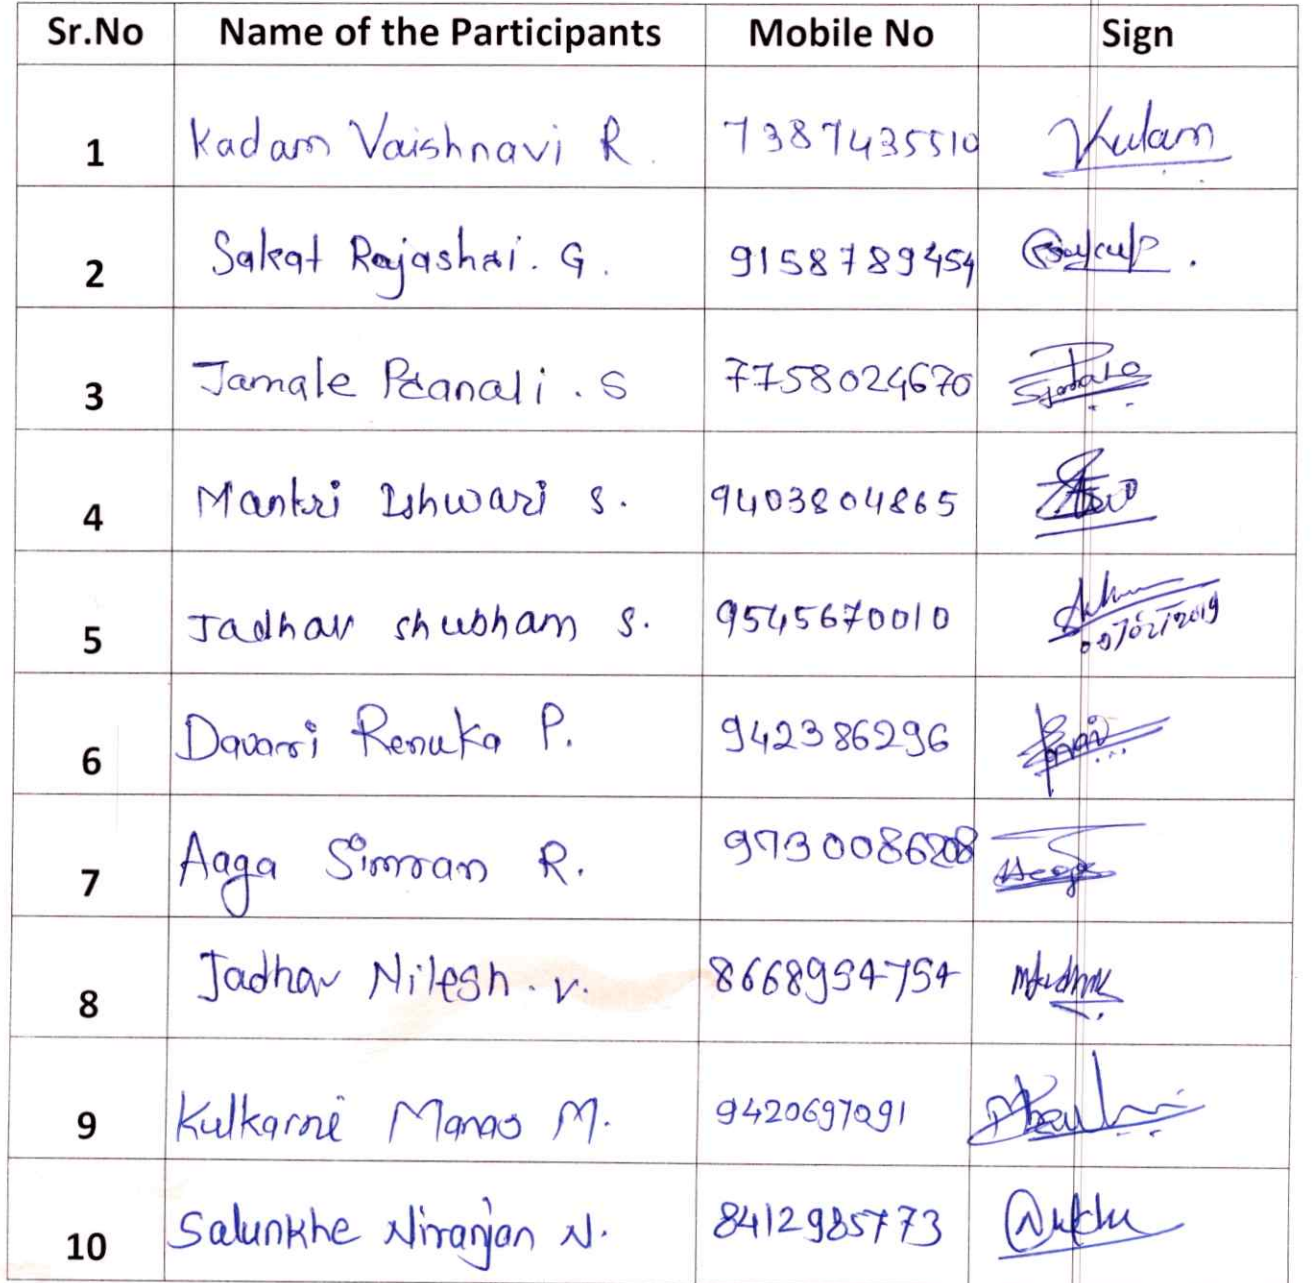 Sr.No Name of the Participants Mobile No Sign
1 Kadam Vaishnavi R. 7387435510
2 Sakat Rajashri. G. 9158789454
3 Jamale Pranali. S 7758024670
4 Mantri Ishwari S. 9403804865
5 Jadhav Shubham S. 9545670010
07/02/2019
6 Davari Renuka P. 942386296
7 Aaga Simran R. 9730086208
8 Jadhav Nilesh. V. 8668954754
9 Kulkarni Manas M. 9420697091
10 Salunkhe Niranjan N. 8412985773